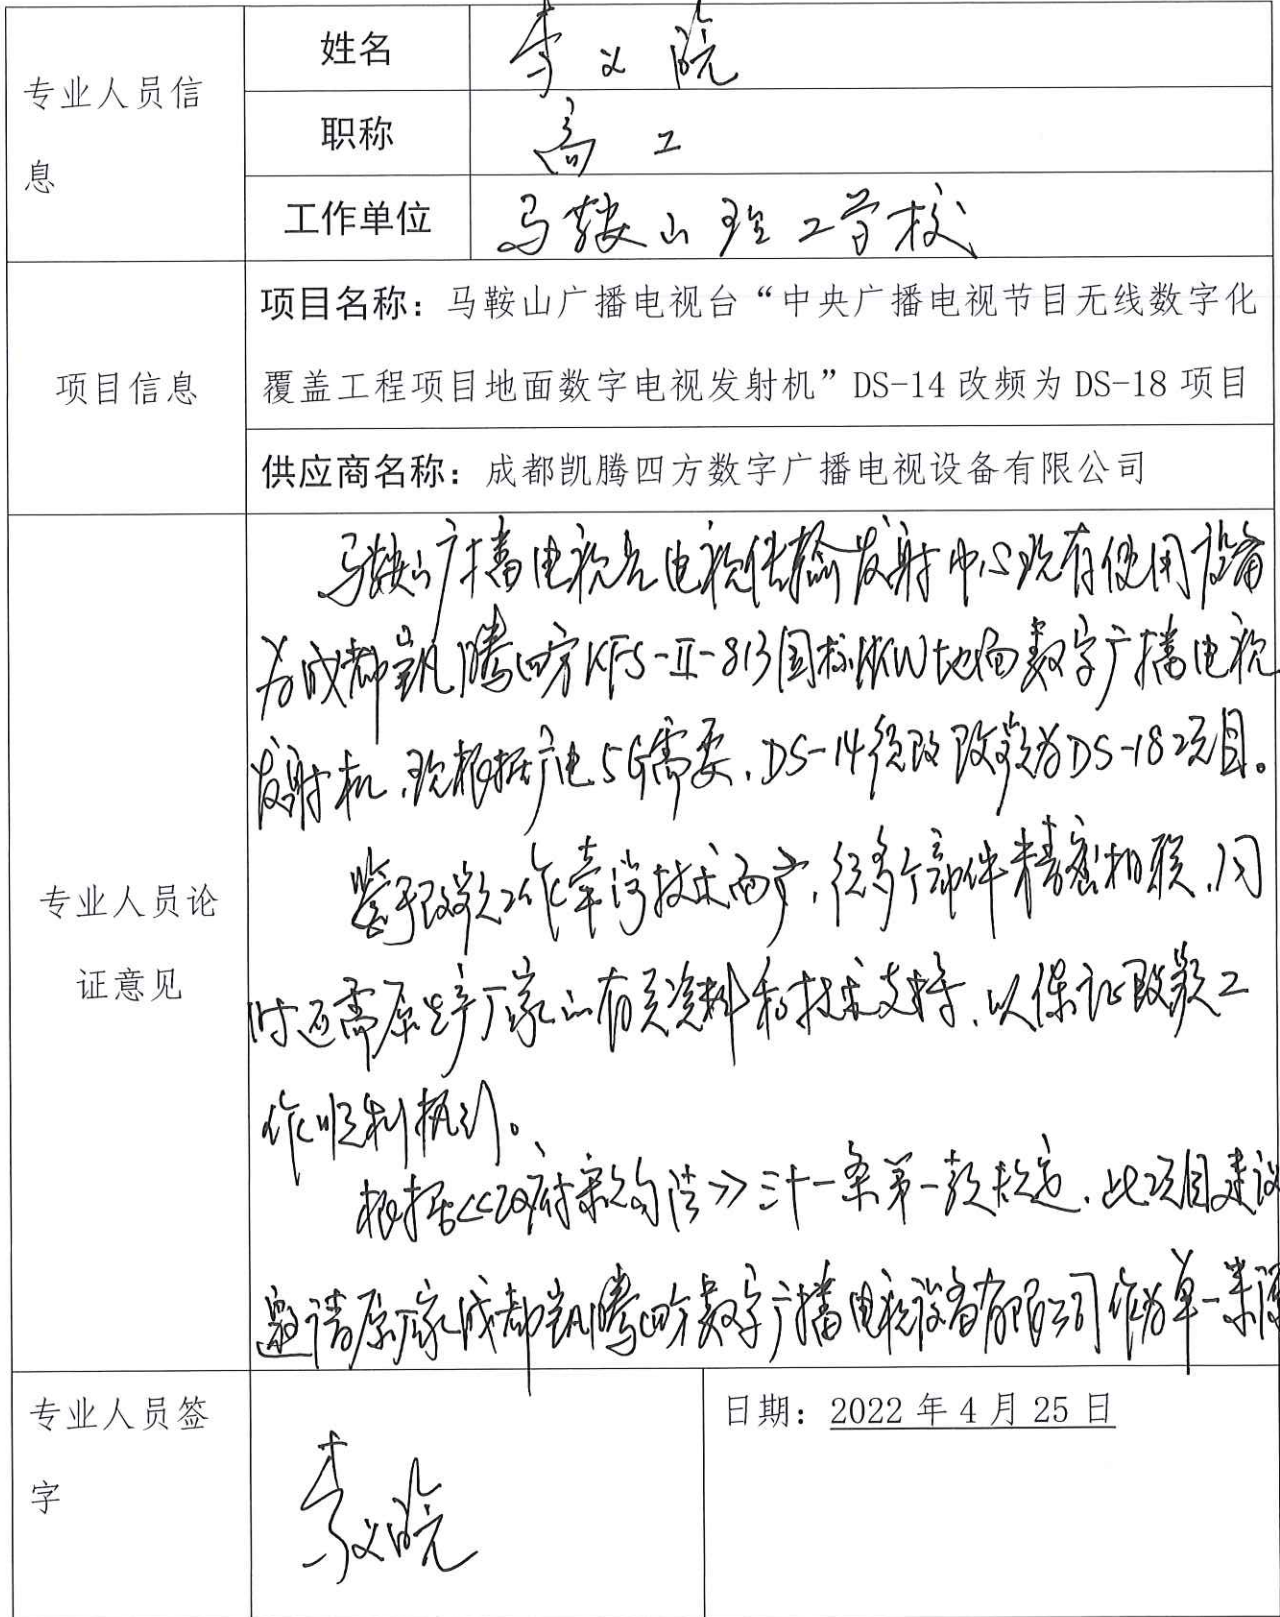 专业人员信
息
姓名
李义皖
职称
高工
工作单位
马鞍山理工学校
项目信息
项目名称：马鞍山广播电视台“中央广播电视节目无线数字化
覆盖工程项目地面数字电视发射机”DS-14 改频为 DS-18 项目
供应商名称：成都凯腾四方数字广播电视设备有限公司
专业人员论
证意见
马鞍山广播电视台电视传输发射中心现有使用设备
为成都凯腾四方KFS-Ⅱ-813国标1KW地面数字广播电视
发射机，现根据广电5G需要，DS-14须改频为DS-18项目。
鉴于改频工作牵涉技术面广，很多个部件精密相联，同
时还需原生产厂家的有关资料和技术支持，以保证改频工
作顺利执行。
根据<<政府采购法>>三十一条第一款规定，此项目建议
邀请原厂家成都凯腾四方数字广播电视设备有限公司作为单一来源
专业人员签
字
李义皖
日期：2022 年 4 月 25 日